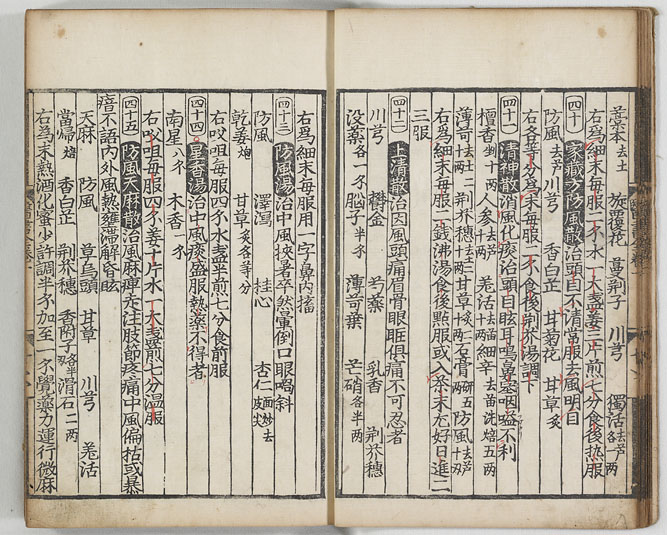 藁本去土 旋覆花 蔓荆子 川芎 獨活去芦各一两
右爲細末每服二钱水一大盞姜三片煎七分食後热服
四十 家藏方防風散治頭目不清常服去風明目
防風去芦 川芎 香白芷 甘菊花 甘草炙
右各等分爲末每服一钱食後荆芥湯調下
四十一 清神散消風化痰治頭目眩耳鳴鼻塞咽嗌不利
檀香 人参去芦 羌活去苗 細辛去苗洗焙五两
薄苛去土 荆芥穗 甘草 石膏研 防風去芦
右爲細末每服一錢沸湯食後點服或入茶末尤好日進二
三服
四十二 上清散治因風頭痛眉骨眼眶俱痛不可忍者
川芎 欝金 芍藥 乳香 荆芥穗
没藥各一钱 脳子半钱 薄苛葉 芒硝各半两
右爲細末每服用一字鼻内搐
四十三 防風湯治中風挾暑卒然暈倒口眼喎斜
防風 澤瀉 桂心 杏仁麵炒去皮尖
乾姜炮 甘草炙各等分
右㕮咀每服四钱水盞半煎七分食前服
四十四 星香湯治中風痰盛服熱藥不得者
南星八钱 木香一钱
右㕮咀每服四钱姜十片水一大盞煎七分温服
四十五 防風天麻散治風麻痺走注肢節疼痛中風偏枯或暴
瘖不語内外風熱壅滞解昏眩
天麻 防風 草烏頭 甘草 川芎 羗活
當歸焙 香白芷 荆芥穗 香附子各半两 滑石二两
右爲末熟酒化蜜少許調半钱加至一钱覺藥力運行微麻